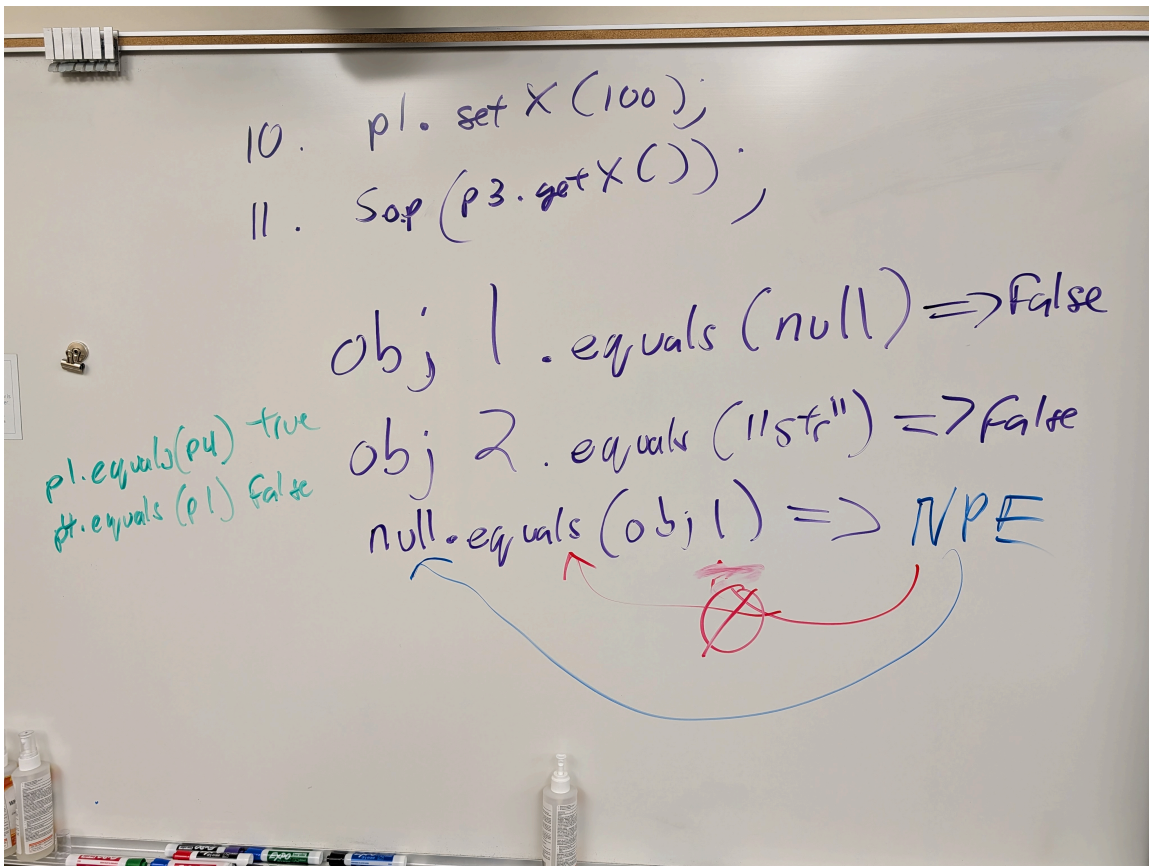 10. p1. set X (100);
11. Sop (p3.getX());
obj 1 . equals (null) => False
obj 2 . equals ("str") => False
null.equals (obj 1) => NPE
p1.equals(p4) true
p4.equals (p1) false
EXPO